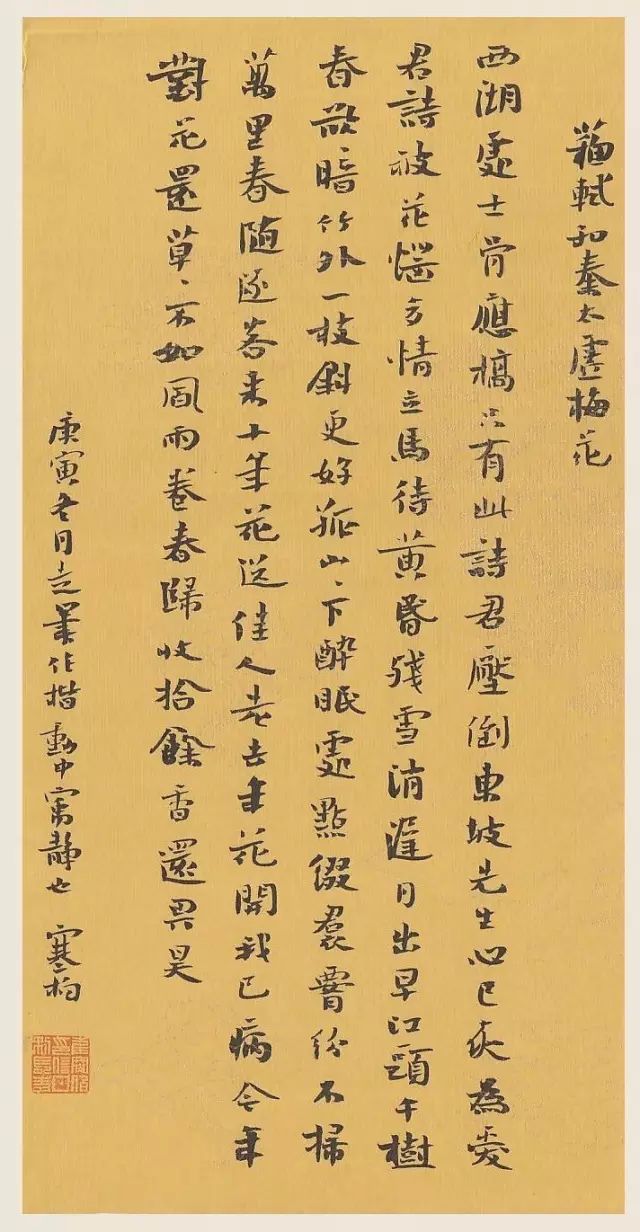 蘇軾和秦太虛梅花
西湖處士骨應槁只有此詩君壓倒東坡先生心已灰為愛
君詩被花惱多情立馬待黃昏殘雪消遲月出早江頭千樹
春欲暗竹外一枝斜更好孤山〻下醉眠處點綴裠腰紛不掃
萬里春隨逐客來十年花送佳人老去年花開我已病今年
對花還草〻不如風雨卷春歸收拾餘香還畀昊
庚寅冬月走筆作楷動中寓靜也 寒柏